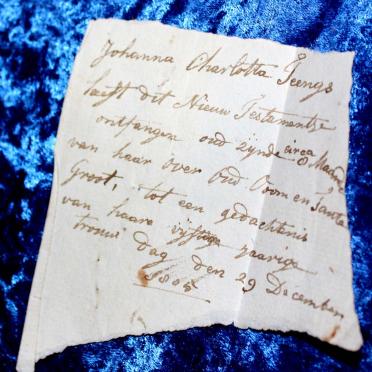 Johanna Charlotta Jeengs
heeft dit Nieuw Testamentje
ontfangen oud zijnde circa 8 Maande
van haar over Oud Oom en Tanta
Groot, tot een gedachtenis
van haare vijftig jaarige
trouw dag den 29 December
1805